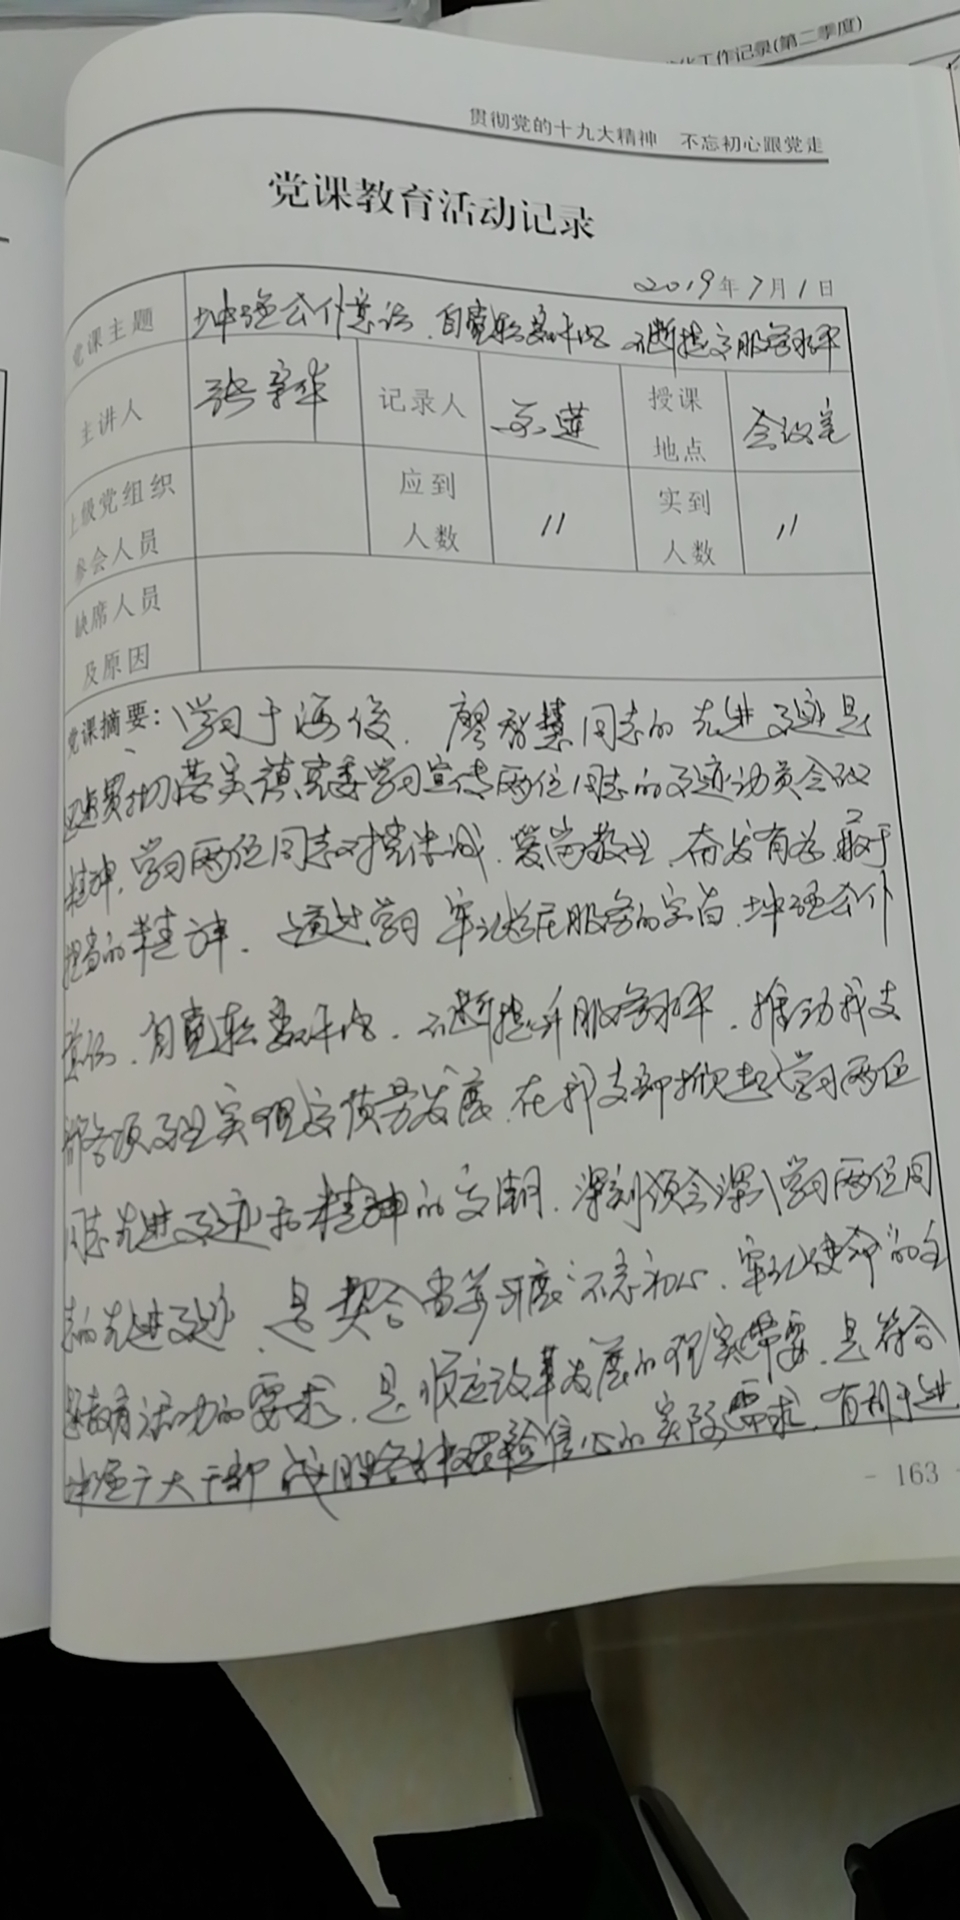 工作记录(第二季度)
贯彻党的十九大精神 不忘初心跟党走
党课教育活动记录
2019年7月1日
党课主题 增强公仆意识、自觉转变作风 不断提高服务水平
主讲人 张宗华 记录人 莲 授课地点 会议室
上级党组织参会人员 应到人数 11 实到人数 11
缺席人员及原因
党课摘要: 学习于海俊、廖智慧同志的先进事迹是
贯彻 镇党委学习宣传两位同志的事迹动员会议
精神,学习两位同志对党忠诚、爱岗敬业、奋发有为、敢于
担当的精神。通过学习牢记 服务的宗旨,增强公仆
意识,自觉转变作风,不断提升服务水平,推动我支
部各项 实现高质量发展,在我支部掀起学习两位
同志先进事迹和精神的高潮,深刻领会深入学习两位同
志的先进事迹,是契合当前开展“不忘初心、牢记使命”的主
题教育活动的要求,是顺应改革发展的现实需要,是符合
增强广大干部战胜各种 信心的实际需求,有利于进
- 163 -